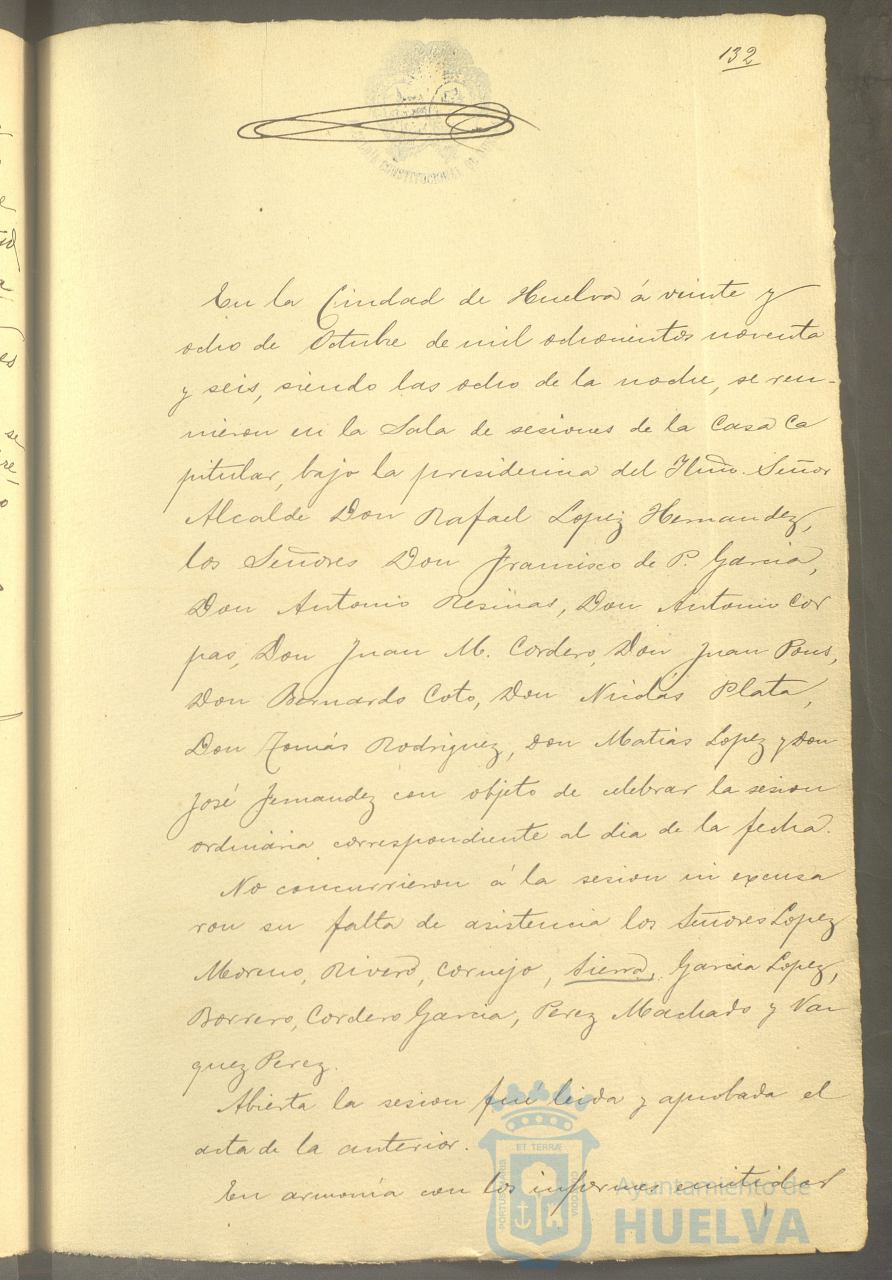 132
CONSTITUCIONAL DE
En la Ciudad de Huelva á veinte y
ocho de Octubre de mil ochocientos noventa
y seis, siendo las ocho de la noche, se reu-
nieron en la Sala de sesiones de la Casa Ca
pitular, bajo la presidencia del Iltmo. Señor
Alcalde Don Rafael Lopez Hernandez,
los Señores Don Francisco de P. Garcia,
Don Antonio Resinas, Don Antonio Cor
pas, Don Juan M. Cordero, Don Juan Pons,
Don Bernardo Coto, Don Nicolás Plata,
Don Tomás Rodriguez, Don Matias Lopez y Don
José Fernandez con objeto de celebrar la sesion
ordinaria correspondiente al dia de la fecha.
No concurrieron á la sesion ni excusa
ron su falta de asistencia los Señores Lopez
Moreno, Rivero, Cornejo, Sierra, Garcia Lopez,
Borrero, Cordero Garcia, Perez Machado y Vaz
quez Perez.
Abierta la sesion fué leida y aprobada el
acta de la anterior.
En armonía con los informes emitidos
ET TERRÆ
Ayuntamiento de
HUELVA